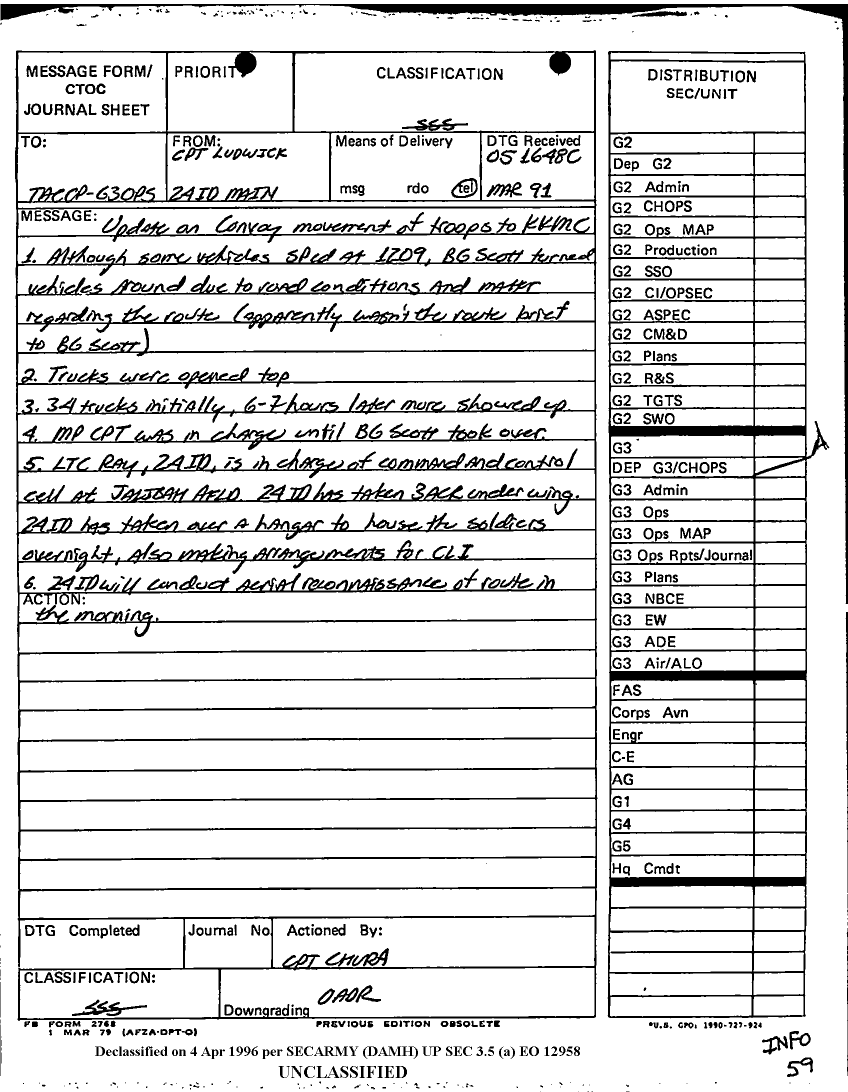 MESSAGE FORM/
CTOC
JOURNAL SHEET
PRIORITY
CLASSIFICATION
SSS
DISTRIBUTION
SEC/UNIT
TO:
TACCP-G3OPS
FROM:
CPT LUDWICK
24ID MAIN
Means of Delivery
msg rdo tel
DTG Received
051648C
MAR 91
MESSAGE: Update on Convoy movement of troops to KKMC
1. Although some vehicles SPed At 1209, BG Scott turned
vehicles around due to road conditions And
regarding the route (apparently wasn't the route brief
to BG Scott)
2. Trucks were opened top
3. 34 trucks initially, 6-7 hours later more showed up.
4. MP CPT was in charge until BG Scott took over.
5. LTC Ray, 24ID, is in charge of command and control
cell at JALIBAH AFLD. 24ID has taken 3ACR under wing.
24ID has taken over A hangar to house the soldiers
overnight, Also making Arrangements for CLI
6. 24ID will conduct Aerial reconnaissance of route in
ACTION:
the morning.
G2
Dep G2
G2 Admin
G2 CHOPS
G2 Ops MAP
G2 Production
G2 SSO
G2 CI/OPSEC
G2 ASPEC
G2 CM&D
G2 Plans
G2 R&S
G2 TGTS
G2 SWO
G3
DEP G3/CHOPS
G3 Admin
G3 Ops
G3 Ops MAP
G3 Ops Rpts/Journal
G3 Plans
G3 NBCE
G3 EW
G3 ADE
G3 Air/ALO
FAS
Corps Avn
Engr
C-E
AG
G1
G4
G5
Hq Cmdt
DTG Completed
Journal No.
Actioned By:
CPT CHURA
CLASSIFICATION:
SSS
Downgrading OADR
FB FORM 2768
1 MAR 79 (AFZA-DPT-O)
PREVIOUS EDITION OBSOLETE
*U.S. GPO: 1990-727-924
Declassified on 4 Apr 1996 per SECARMY (DAMH) UP SEC 3.5 (a) EO 12958
UNCLASSIFIED
INFO
59